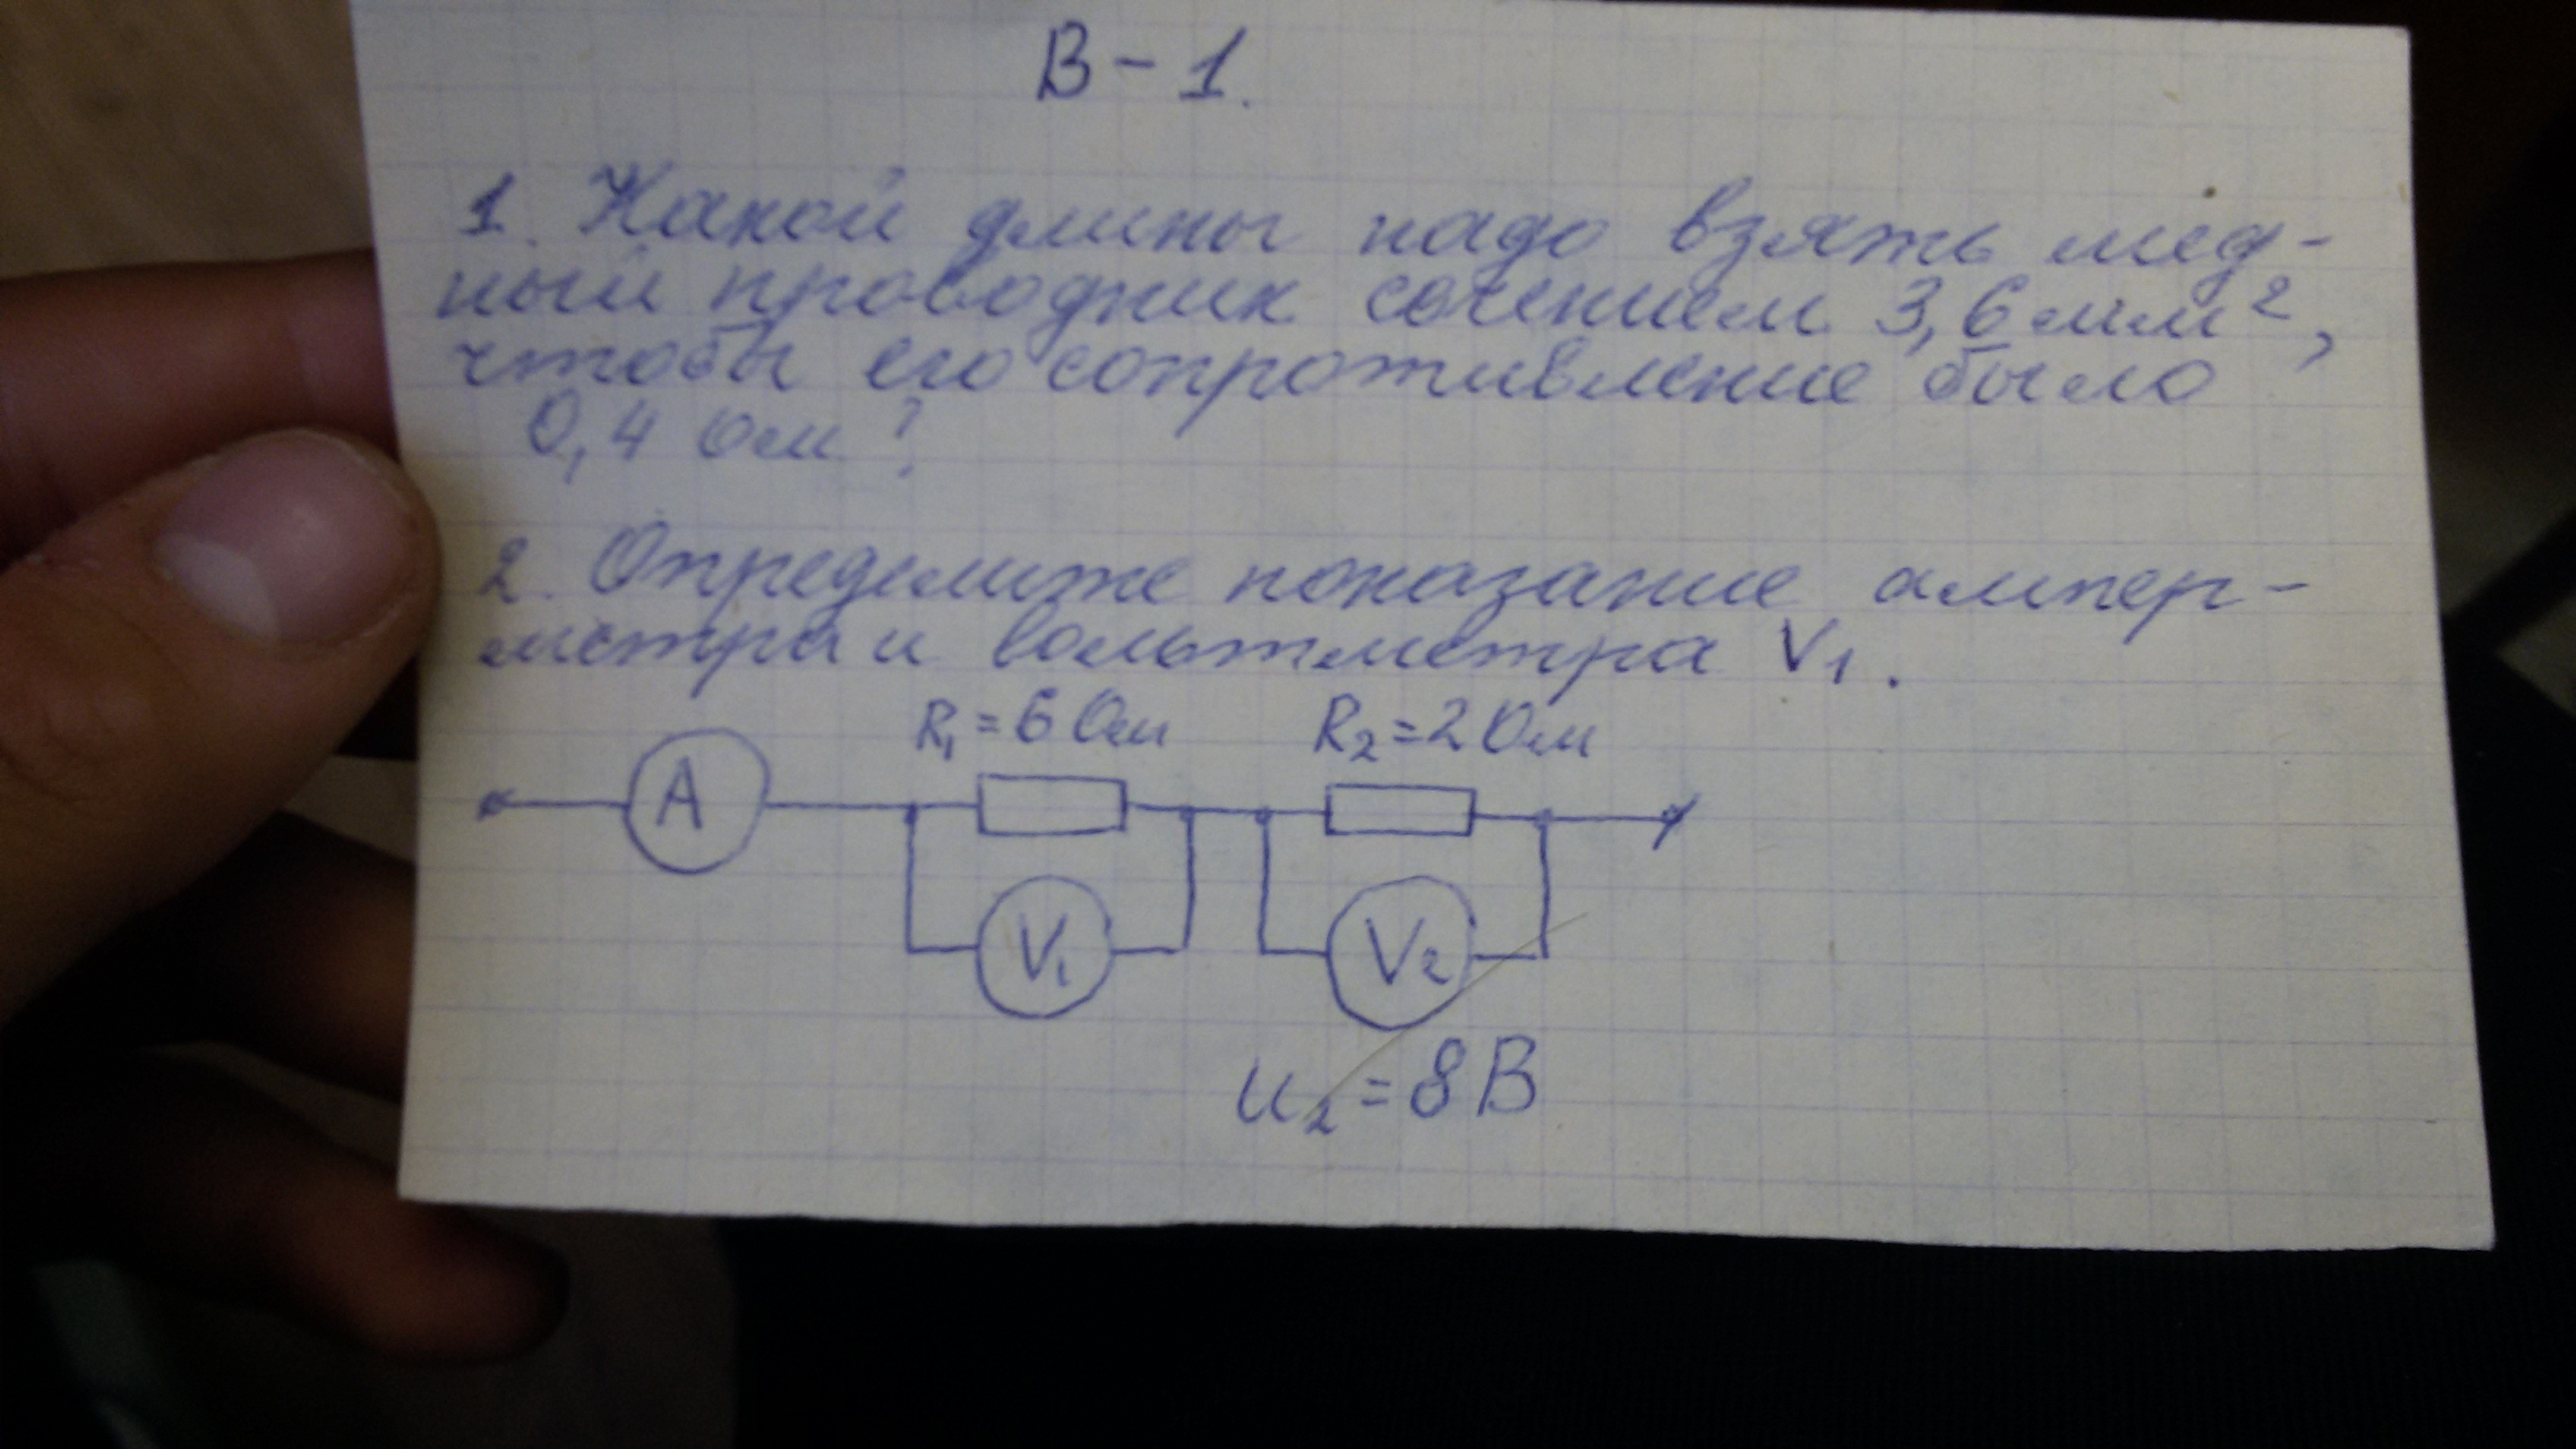 В-1.
1. Какой длины надо взять мед-
ный проводник сечением 3,6 мм²,
чтобы его сопротивление было
0,4 Ом?
2. Определите показание ампер-
метра и вольтметра V₁.
R₁=6 Ом R₂=2 Ом
A
V₁ V₂
U₂=8В